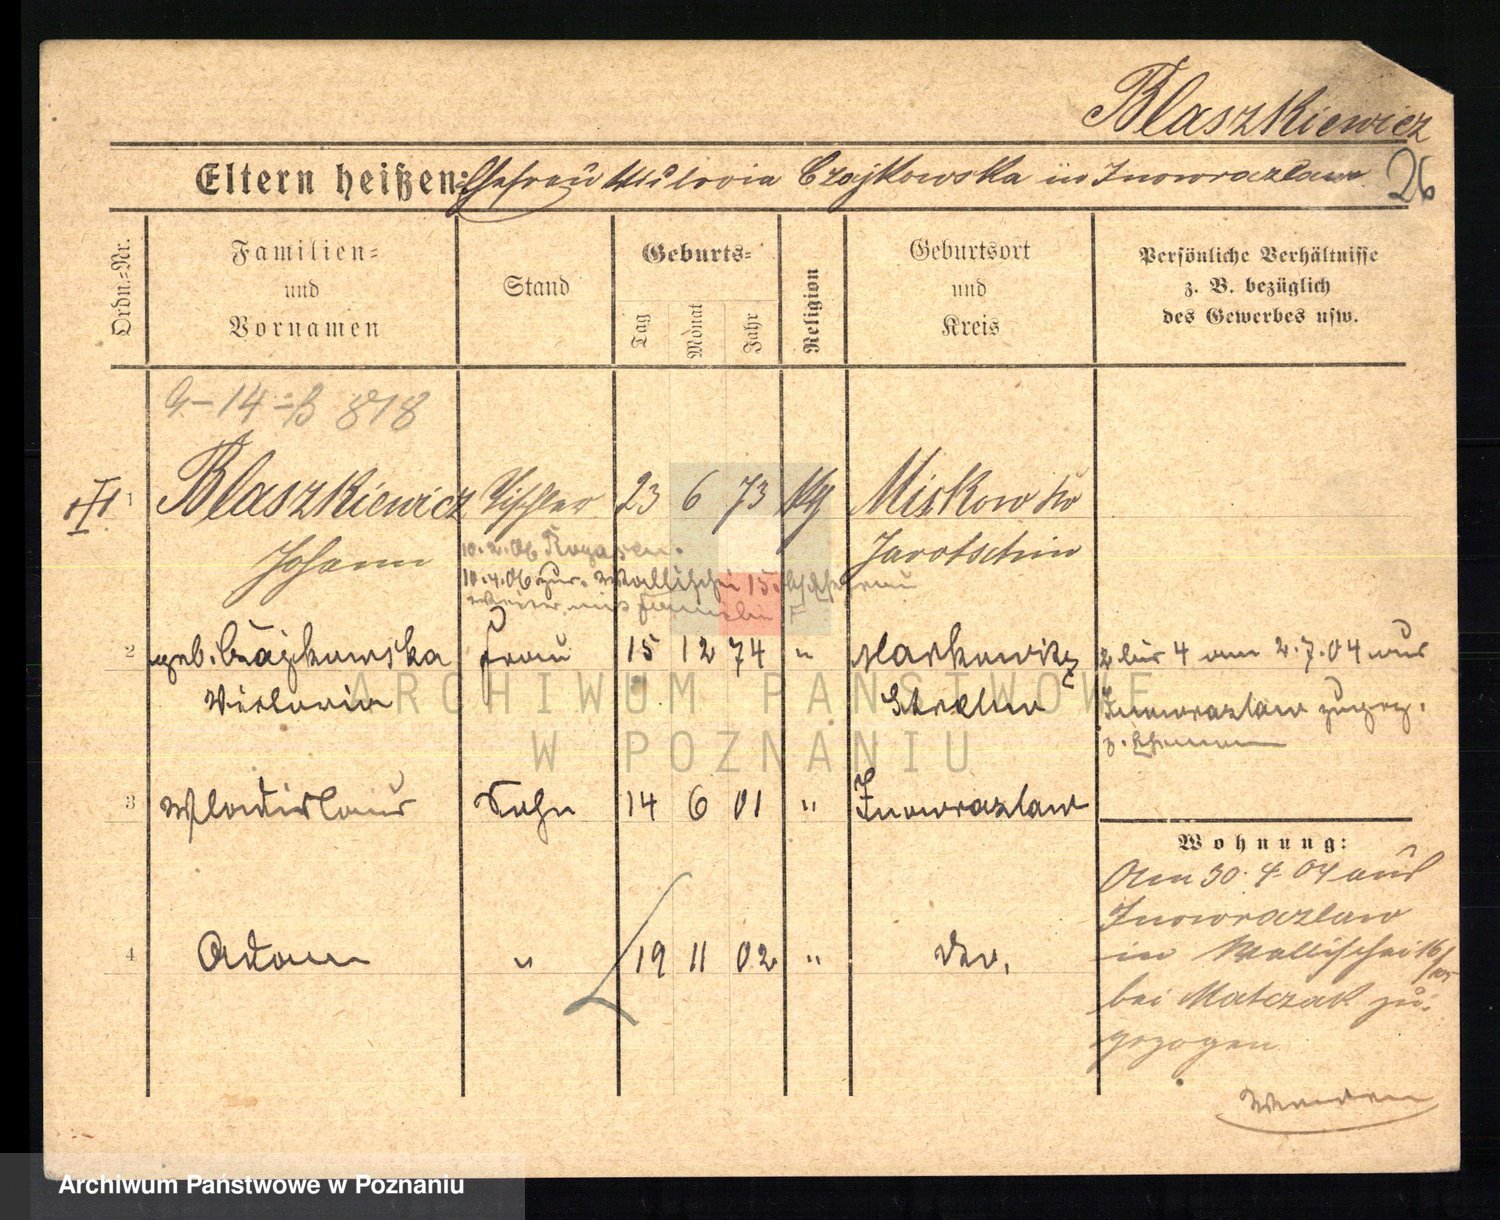 Blaszkiewicz
Eltern heißen: Ehefrau Victoria Czajkowska in Inowrazlaw 26
Ordn.=Nr.
Familien=
und
Vornamen
Stand
Geburts=
Tag
Monat
Jahr
Religion
Geburtsort
und
Kreis
Persönliche Verhältnisse
z. B. bezüglich
des Gewerbes usw.
G-14 = B 818
1 Blaszkiewicz Tischler 23 6 73 kg Miskow
Johann Jarotschin
10.2.06 Rogasen.
10.4.06 zur. Wallischei 15
weiter mit Familie
2 geb. Czajkowska Frau 15 12 74 " Markowitz
Victoria Strelno
2 bis 4 am 2.7.04 aus
Inowrazlaw zugez.
z. Ehemann
3 Wladislaus Sohn 14 6 01 " Inowrazlaw
4 Adam " 19 11 02 " do.
Wohnung:
Am 30.4.04 aus
Inowrazlaw
in Wallischei
bei Matczak zu-
gezogen
Wenden
ARCHIWUM PAŃSTWOWE
W POZNANIU
Archiwum Państwowe w Poznaniu